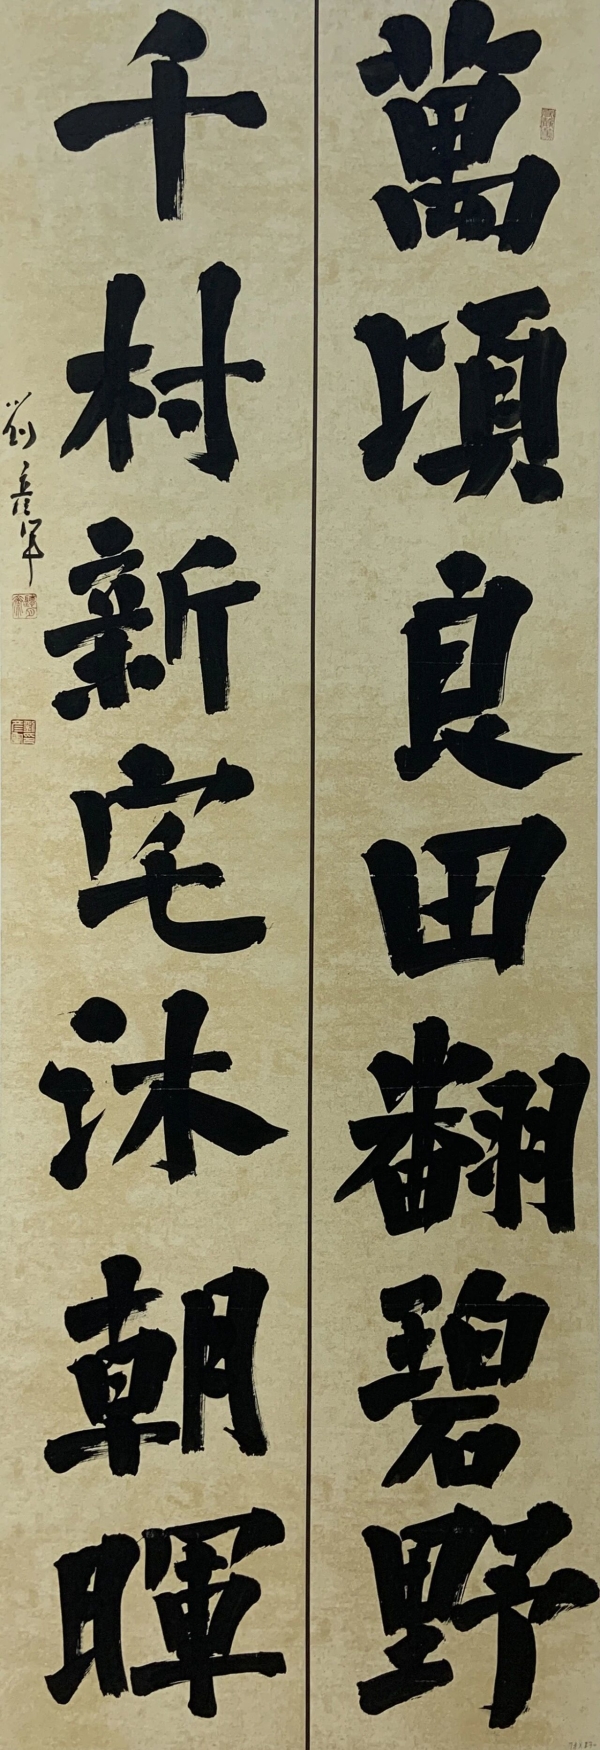 萬頃良田翻碧野
千村新宅沐朝暉
劉彥軍